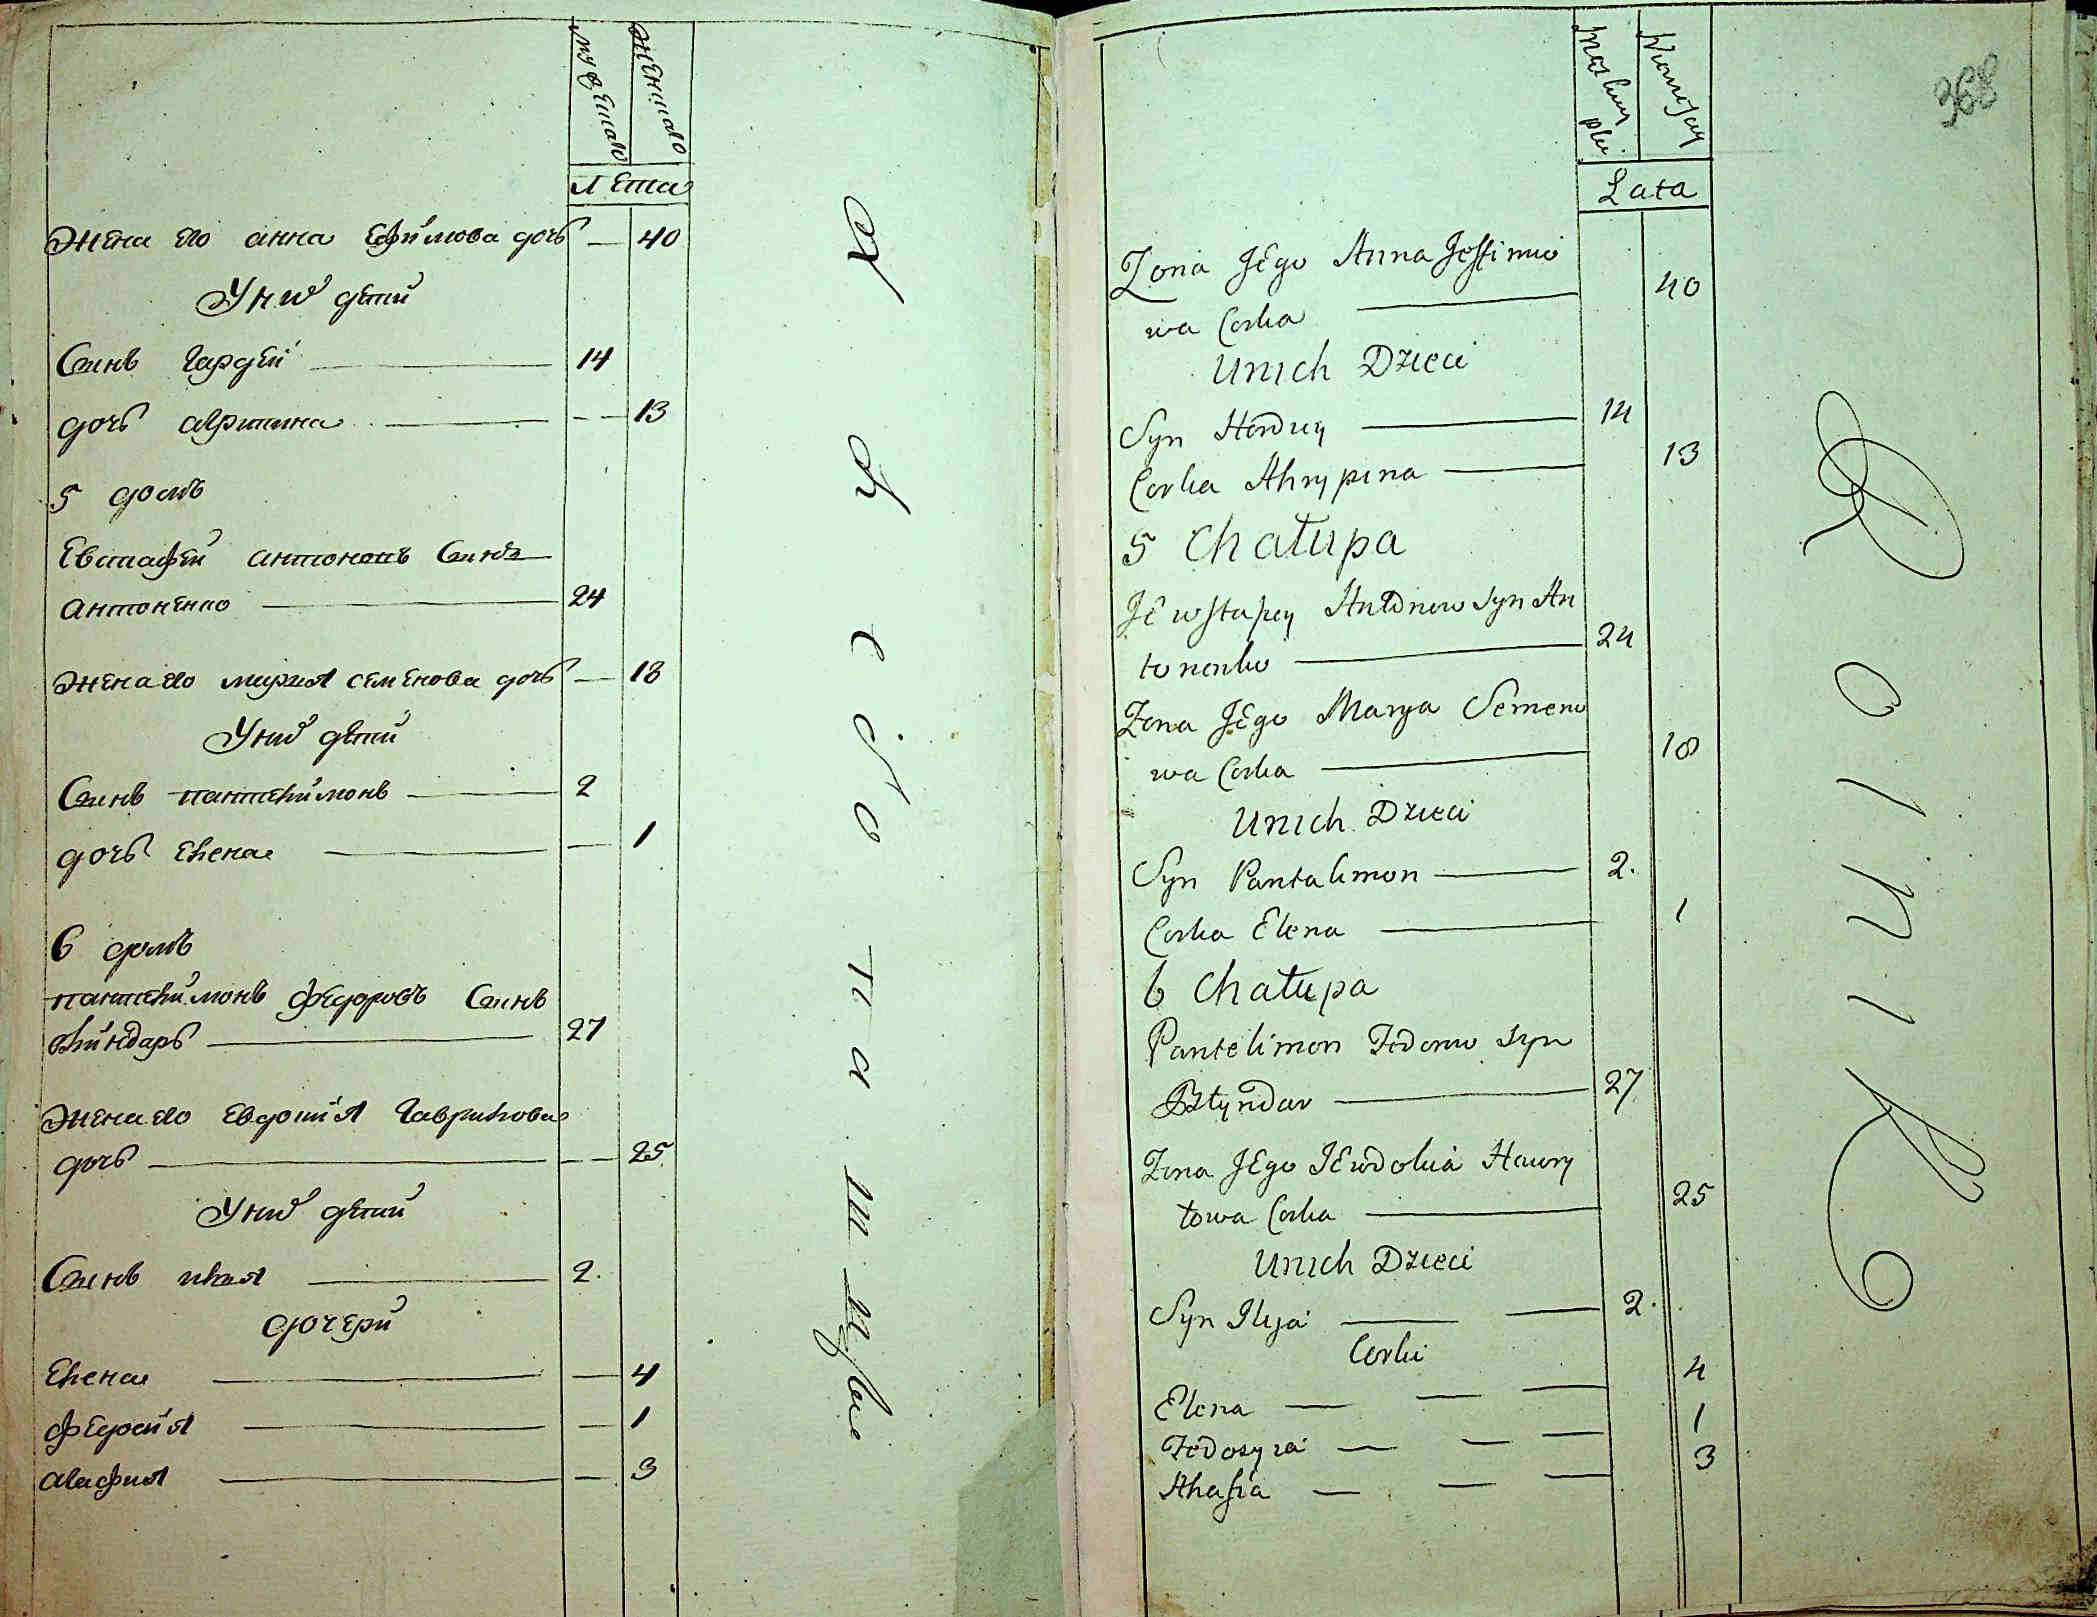 мужеска
женска
лета
жена его анна Ефимова дочь — 40
У них дети
Синъ Гардей — 14
дочь агрипина — 13
5 домъ
Евстафей антоновъ Синъ
антоненко — 24
жена его мария семенова дочь — 18
У них дети
Синъ пантелимонъ — 2
дочь елена — 1
6 домъ
пантелимонъ федоровъ Синъ
блиндарь — 27
жена его Евдокия Гаврилова
дочь — 25
У них дети
Синъ илия — 2.
дочери
елена — 4
федосия — 1
агафия — 3
368
Lata
Zona Jego Anna Jeffimio
wa Corka — 40
Unich Dzieci
Syn Hordiey — 14
Corka Ahrypina — 13
5 Chałupa
Jewstapey Antonow syn An
tonenko — 24
Zona Jego Marya Semeno
wa Corka — 18
Unich Dzieci
Syn Pantalimon — 2.
Corka Elena — 1
6 Chałupa
Pantelimon Fedorow Syn
Blyndar — 27
Zona Jego Jewdokia Hawry
łowa Corka — 25
Unich Dzieci
Syn Ilija — 2.
Corki
Elena — 4
Fedosyia — 1
Ahafia — 3